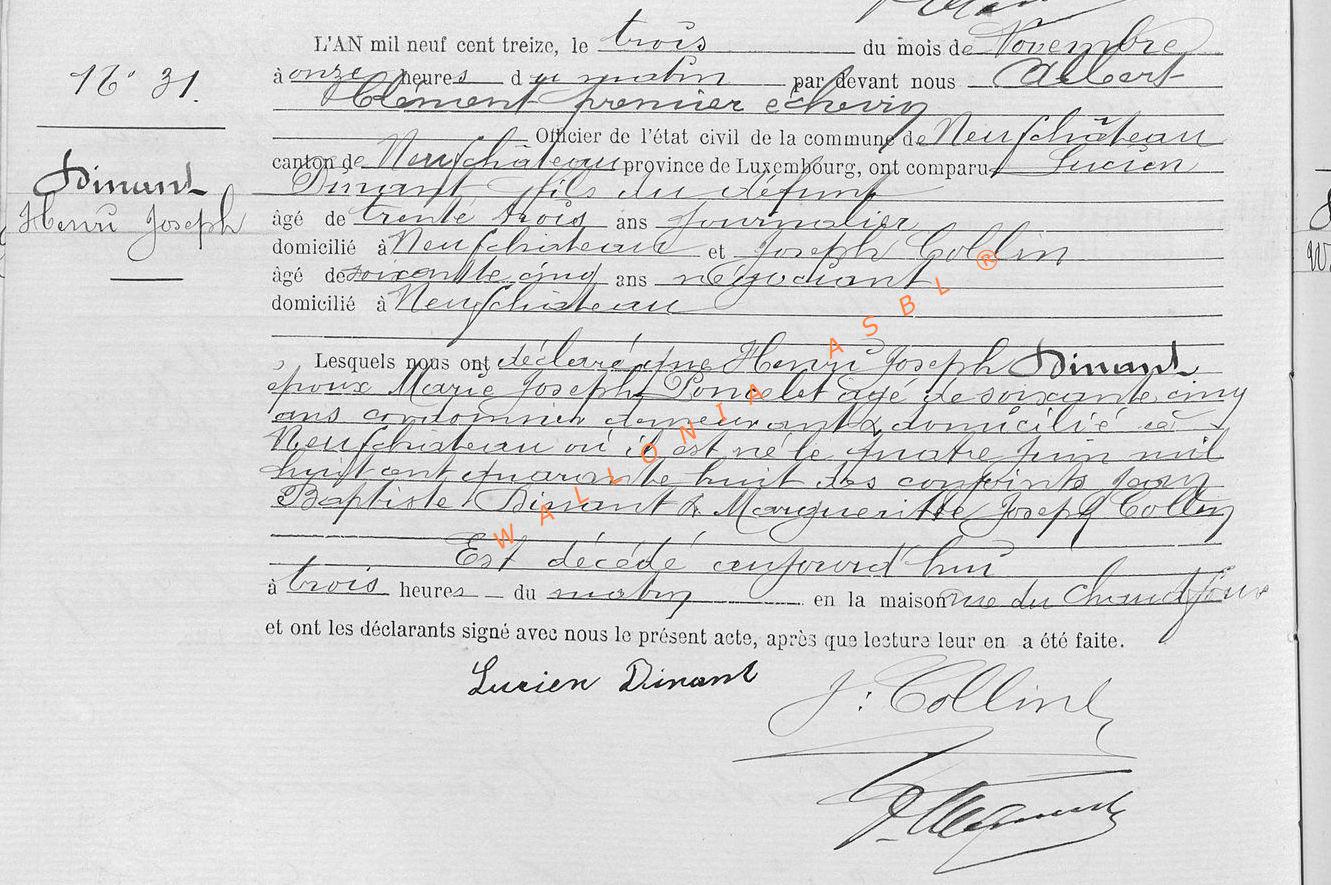 N° 31.
Dinant
Henri Joseph
L'AN mil neuf cent treize, le trois du mois de Novembre
à onze heures du matin par devant nous Albert
Clément premier échevin
Officier de l'état civil de la commune de Neufchâteau
canton de Neufchâteau province de Luxembourg, ont comparu Lucien
Dinant fils du défunt
âgé de trente trois ans journalier
domicilié à Neufchateau et Joseph Collin
âgé de soixante cinq ans négociant
domicilié à Neufchateau
Lesquels nous ont déclaré que Henri Joseph Dinant
époux Marie Joseph Poncelet agé de soixante cinq
ans cordonnier demeurant & domicilié à
Neufchateau où il est né le quatre juin mil
huit cent quarante huit des conjoints Jean
Baptiste Dinant & Margueritte Joseph Collin
Est décédé aujourd'hui
à trois heures du matin en la maison rue du Chaudfour
et ont les déclarants signé avec nous le présent acte, après que lecture leur en a été faite.
Lucien Dinant
J: Collin
WALLONIA ASBL ®